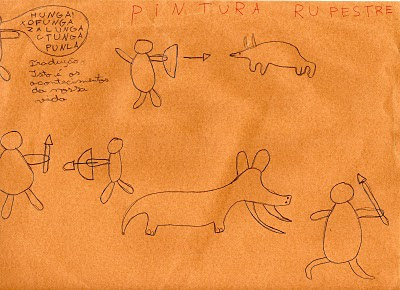 PINTURA RUPESTRE
HUNGA!
KOFUNGA
ZALUNGA
CTUNGA
PUNLA
Tradução -
Isto é os
acontecimentos
da nossa
vida